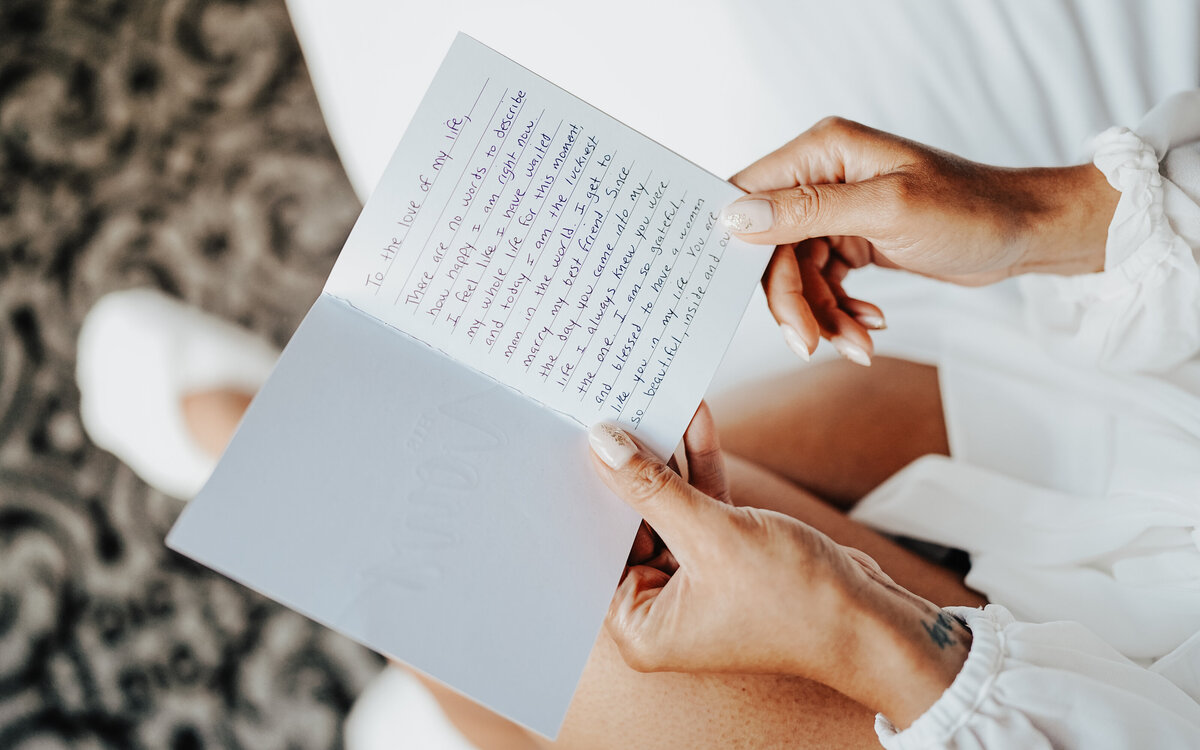 To the love of my life,
There are no words to describe
how happy I am right now.
I feel like I have waited
my whole life for this moment
and today I am the luckiest
man in the world. I get to
marry my best friend. Since
the day you came into my
life I always knew you were
the one. I am so grateful,
and blessed to have a woman
like you in my life. You are
so beautiful, inside and